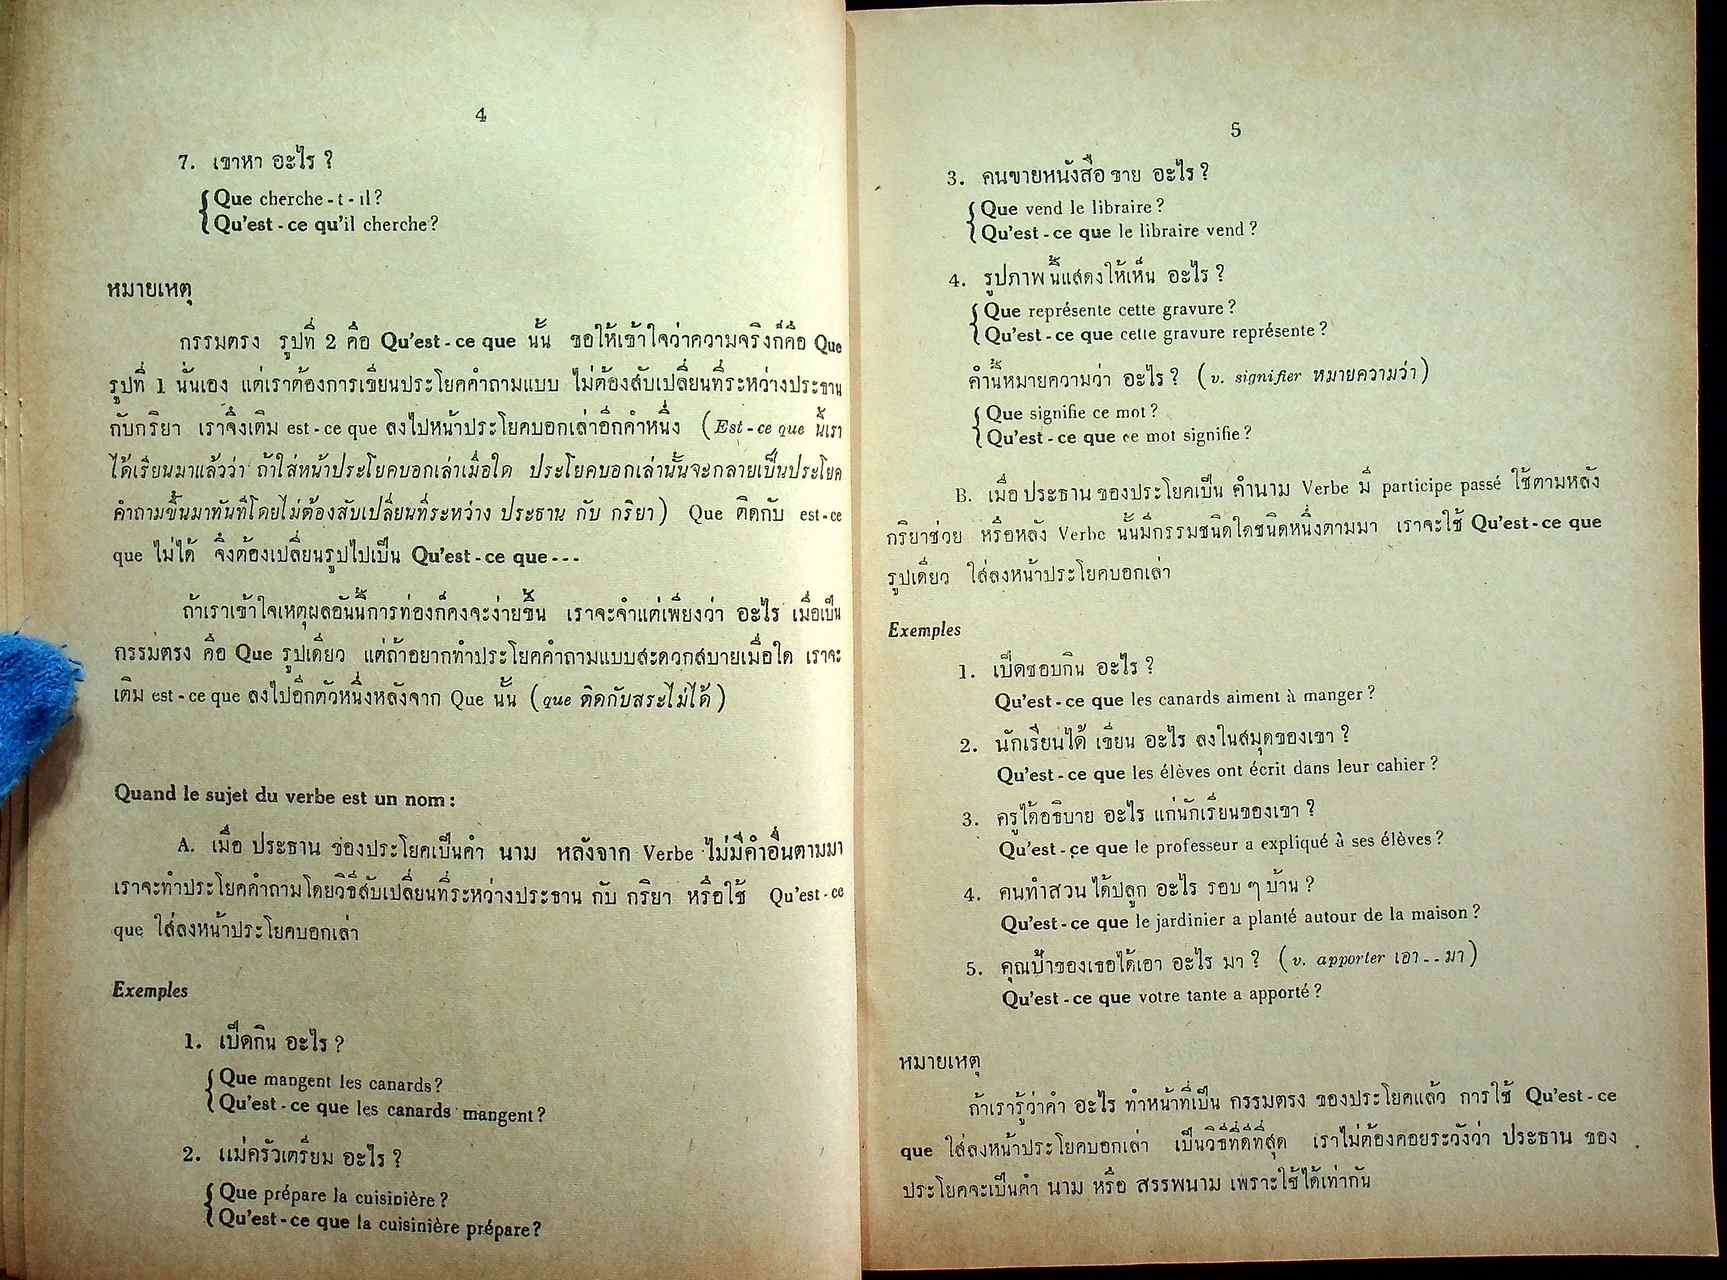 4
7. เขาหา อะไร ?
Que cherche - t - il ?
Qu'est - ce qu'il cherche ?
หมายเหตุ
กรรมตรง รูปที่ 2 คือ Qu'est - ce que นั้น ขอให้เข้าใจว่าความจริงก็คือ Que
รูปที่ 1 นั่นเอง แต่เราต้องการเขียนประโยคคำถามแบบ ไม่ต้องสับเปลี่ยนที่ระหว่างประธาน
กับกริยา เราจึงเติม est - ce que ลงไปหน้าประโยคบอกเล่าอีกคำหนึ่ง (Est - ce que นี้เรา
ได้เรียนมาแล้วว่า ถ้าใส่หน้าประโยคบอกเล่าเมื่อใด ประโยคบอกเล่านั้นจะกลายเป็นประโยค
คำถามขึ้นมาทันทีโดยไม่ต้องสับเปลี่ยนที่ระหว่าง ประธาน กับ กริยา) Que ติดกับ est-ce
que ไม่ได้ จึงต้องเปลี่ยนรูปไปเป็น Qu'est - ce que - - -
ถ้าเราเข้าใจเหตุผลอันนี้การท่องก็คงจะง่ายขึ้น เราจะจำแต่เพียงว่า อะไร เมื่อเป็น
กรรมตรง คือ Que รูปเดียว แต่ถ้าอยากทำประโยคคำถามแบบสะดวกสบายเมื่อใด เราจะ
เติม est - ce que ลงไปอีกตัวหนึ่งหลังจาก Que นั้น (que ติดกับสระไม่ได้)
Quand le sujet du verbe est un nom :
A. เมื่อ ประธาน ของประโยคเป็นคำ นาม หลังจาก Verbe ไม่มีคำอื่นตามมา
เราจะทำประโยคคำถามโดยวิธีสับเปลี่ยนที่ระหว่างประธาน กับ กริยา หรือใช้ Qu'est - ce
que ใส่ลงหน้าประโยคบอกเล่า
Exemples
1. เป็ดกิน อะไร ?
Que mangent les canards ?
Qu'est - ce que les canards mangent ?
2. แม่ครัวเตรียม อะไร ?
Que prépare la cuisinière ?
Qu'est - ce que la cuisinière prépare ?
5
3. คนขายหนังสือ ขาย อะไร ?
Que vend le libraire ?
Qu'est - ce que le libraire vend ?
4. รูปภาพนี้แสดงให้เห็น อะไร ?
Que représente cette gravure ?
Qu'est - ce que cette gravure représente ?
คำนี้หมายความว่า อะไร ? (v. signifier หมายความว่า)
Que signifie ce mot ?
Qu'est - ce que ce mot signifie ?
B. เมื่อ ประธาน ของประโยคเป็น คำนาม Verbe มี participe passé ใช้ตามหลัง
กริยาช่วย หรือหลัง Verbe นั้นมีกรรมชนิดใดชนิดหนึ่งตามมา เราจะใช้ Qu'est - ce que
รูปเดียว ใส่ลงหน้าประโยคบอกเล่า
Exemples
1. เป็ดชอบกิน อะไร ?
Qu'est - ce que les canards aiment à manger ?
2. นักเรียนได้ เขียน อะไร ลงในสมุดของเขา ?
Qu'est - ce que les élèves ont écrit dans leur cahier ?
3. ครูได้อธิบาย อะไร แก่นักเรียนของเขา ?
Qu'est - ce que le professeur a expliqué à ses élèves ?
4. คนทำสวน ได้ปลูก อะไร รอบ ๆ บ้าน ?
Qu'est - ce que le jardinier a planté autour de la maison ?
5. คุณป้าของเธอได้เอา อะไร มา ? (v. apporter เอา . . มา)
Qu'est - ce que votre tante a apporté ?
หมายเหตุ
ถ้าเรารู้ว่าคำ อะไร ทำหน้าที่เป็น กรรมตรง ของประโยคแล้ว การใช้ Qu'est - ce
que ใส่ลงหน้าประโยคบอกเล่า เป็นวิธีที่ดีที่สุด เราไม่ต้องคอยระวังว่า ประธาน ของ
ประโยคจะเป็นคำ นาม หรือ สรรพนาม เพราะใช้ได้เท่ากัน